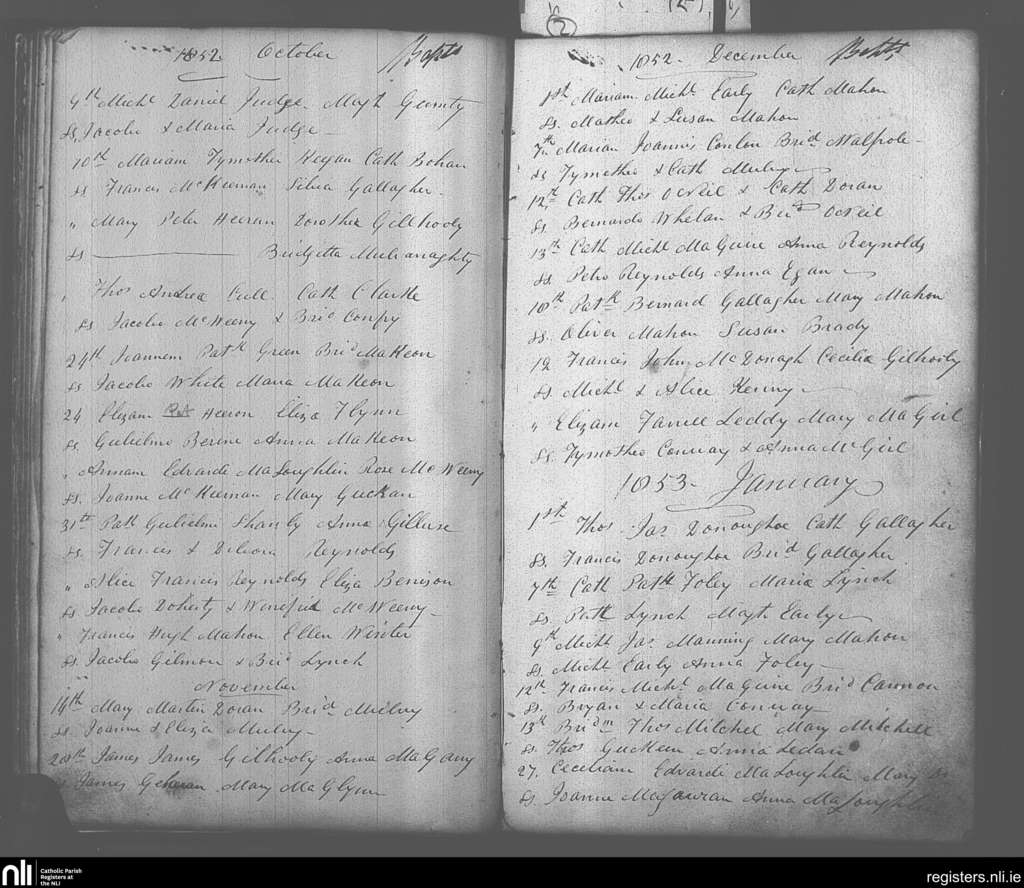 (2)
1852 October Bapts
9th Michl Daniel Judge Magt Geraty
Ss. Jacobo & Maria Judge
10th Mariam Tymothei Keegan Cath Bohan
Ss Francis McKeernan Gallagher
" Mary Peter Heeran Dorothea Gillhooly
Ss Bridgetta Mulvanaghty
" Thos Andrea Cull Cath Clarke
Ss. Jacobo McWeeny & Brid Conry
24th Joannem Patk Green Brid MaKeon
Ss Jacobo White Maria MaKeon
24 Elizam Pat Heeron Eliza Flynn
Ss. Gulielmo Beirne Anna MaKeon
" Annam Edvardi MaLoughlin Rose McWeeny
Ss. Joanne McKeernan Mary Guckian
31st Patk Gulielmi Shanly Anna
Ss. Francis & Debora Reynolds
" Alice Francis Reynolds Eliza Benison
Ss Jacobo Doherty & Winefrid McWeeny
" Francis Hugh Mahon Ellen Winter
Ss. Jacobo Gilmore & Brid Lynch
November
14th Mary Martin Doran Brid Mulvy
Ss Joanne & Eliza Mulvy
20th James James Gilhooly Anna MaGany
James Geheran Mary MaGlynn
1852 December Bapts
1st Mariam Michl Early Cath Mahon
Ss. Matheo & Susan Mahon
7th Marian Joannis Conlon Brid Walpole
Ss Tymotheo & Cath Mulvy
12th Cath Thos ONeil & Cath Doran
Ss Bernardo Whelan & Brid ONeil
13th Cath Michl MaGuire Anna Reynolds
Ss. Petro Reynolds Anna Egan
10th Patk Bernard Gallagher Mary Mahon
Ss. Oliver Mahon Susan Brady
12 Francis John McDonagh Cecilia Gilhooly
Ss Michl & Alice Kenny
" Elizam Farrell Leddy Mary MaGirl
Ss. Tymotheo Conway & Anna McGirl
1853. January
1st Thos Jas Donoughoe Cath Gallagher
Ss. Francis Donoughoe Brid Gallagher
7th Cath Patk Foley Maria Lynch
Ss Patk Lynch Magt Early
9th Michl Jas Manning Mary Mahon
Ss. Michl Early Anna Foley
12th Francis Michl MaGuire Brid Cannon
Ss. Bryan & Maria Conway
13th Bridm Thos Mitchel Mary Mitchell
Ss. Thos Guckeen Anna Ledan
27. Ceciliam Edvardi MaLoughlin Mary
Ss. Joanne MaGauran Anna MaLoughlin
nli Catholic Parish
Registers at
the NLI
registers.nli.ie